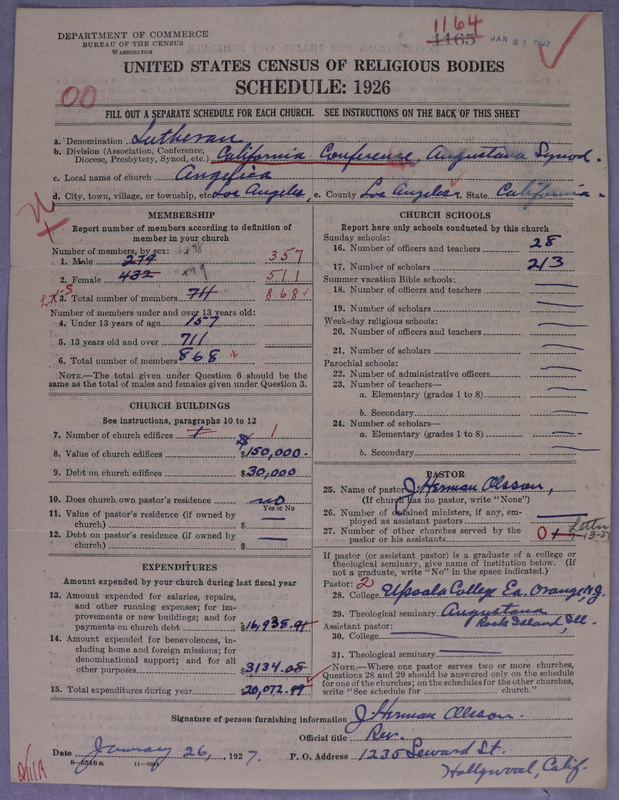 DEPARTMENT OF COMMERCE
BUREAU OF THE CENSUS
WASHINGTON
1164
1165
JAN 31 1927
UNITED STATES CENSUS OF RELIGIOUS BODIES
SCHEDULE: 1926
00
FILL OUT A SEPARATE SCHEDULE FOR EACH CHURCH. SEE INSTRUCTIONS ON THE BACK OF THIS SHEET
a. Denomination Lutheran
b. Division (Association, Conference, Diocese, Presbytery, Synod, etc.) California Conference, Augustana Synod.
c. Local name of church Angelica
d. City, town, village, or township, etc. Los Angeles, e. County Los Angeles f. State California.
MEMBERSHIP
Report number of members according to definition of
member in your church
Number of members, by sex:
1. Male 279 357
2. Female 432 511
3. Total number of members 711 868
Number of members under and over 13 years old:
4. Under 13 years of age 157
5. 13 years old and over 711
6. Total number of members 868
NOTE.—The total given under Question 6 should be the
same as the total of males and females given under Question 3.
CHURCH BUILDINGS
See instructions, paragraphs 10 to 12
7. Number of church edifices 1 1
8. Value of church edifices $150,000.
9. Debt on church edifices $30,000
10. Does church own pastor's residence no
Yes or No
11. Value of pastor's residence (if owned by
church) $
12. Debt on pastor's residence (if owned by
church) $
EXPENDITURES
Amount expended by your church during last fiscal year
13. Amount expended for salaries, repairs,
and other running expenses; for im-
provements or new buildings; and for
payments on church debt $16,938.91
14. Amount expended for benevolences, in-
cluding home and foreign missions; for
denominational support; and for all
other purposes $3134.08
15. Total expenditures during year $20,072.99
CHURCH SCHOOLS
Report here only schools conducted by this church
Sunday schools:
16. Number of officers and teachers 28
17. Number of scholars 213
Summer vacation Bible schools:
18. Number of officers and teachers
19. Number of scholars
Week-day religious schools:
20. Number of officers and teachers
21. Number of scholars
Parochial schools:
22. Number of administrative officers
23. Number of teachers—
a. Elementary (grades 1 to 8)
b. Secondary
24. Number of scholars—
a. Elementary (grades 1 to 8)
b. Secondary
PASTOR
25. Name of pastor J. Herman Olsson,
(If church has no pastor, write "None")
26. Number of ordained ministers, if any, em-
ployed as assistant pastors
27. Number of other churches served by the
pastor or his assistants 0 Letter
If pastor (or assistant pastor) is a graduate of a college or
theological seminary, give name of institution below. (If
not a graduate, write "No" in the space indicated.)
Pastor: 2
28. College Upsala College Ea. Orange, N.J.
29. Theological seminary Augustana
Rock Island, Ill.
Assistant pastor:
30. College
31. Theological seminary
NOTE.—Where one pastor serves two or more churches,
Questions 28 and 29 should be answered only on the schedule
for one of the churches; on the schedules for the other churches,
write "See schedule for church."
Signature of person furnishing information J. Herman Olsson.
Official title Rev.
Date January 26, 1927. P. O. Address 1235 Seward St.
Hollywood, Calif.
8-5518 a 11-9051